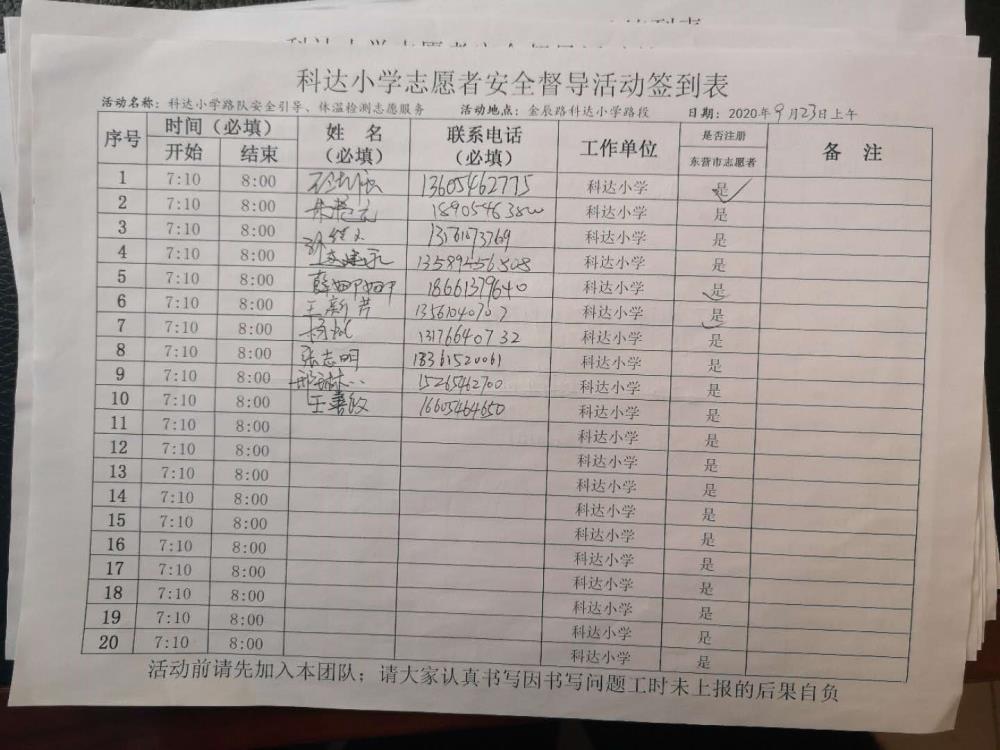 科达小学志愿者安全督导活动签到表
活动名称：科达小学路队安全引导、体温检测志愿服务 活动地点：金辰路科达小学路段 日期：2020年9月23日上午
序号 时间（必填） 姓 名（必填） 联系电话（必填） 工作单位 是否注册 备 注
开始 结束 东营市志愿者
1 7:10 8:00 13605462775 科达小学 是
2 7:10 8:00 科达小学 是
3 7:10 8:00 科达小学 是
4 7:10 8:00 13589456808 科达小学 是
5 7:10 8:00 薛 18661379640 科达小学 是
6 7:10 8:00 王新芳 13561040707 科达小学 是
7 7:10 8:00 13176640732 科达小学 是
8 7:10 8:00 张志明 18361520061 科达小学 是
9 7:10 8:00 15265462700 科达小学 是
10 7:10 8:00 王 16605464650 科达小学 是
11 7:10 8:00 科达小学 是
12 7:10 8:00 科达小学 是
13 7:10 8:00 科达小学 是
14 7:10 8:00 科达小学 是
15 7:10 8:00 科达小学 是
16 7:10 8:00 科达小学 是
17 7:10 8:00 科达小学 是
18 7:10 8:00 科达小学 是
19 7:10 8:00 科达小学 是
20 7:10 8:00 科达小学 是
活动前请先加入本团队；请大家认真书写因书写问题工时未上报的后果自负